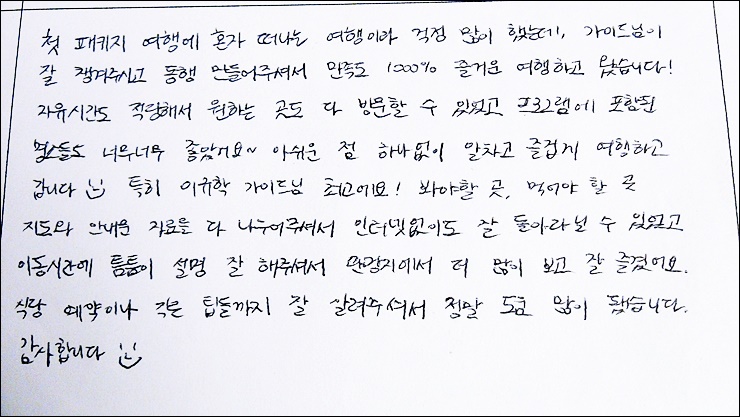 첫 패키지 여행에 혼자 떠나는 여행이라 걱정 많이 했는데, 가이드님이
잘 챙겨주시고 동행 만들어주셔서 만족도 1000% 즐거운 여행하고 왔습니다!
자유시간도 적당해서 원하는 곳도 다 방문할 수 있었고 프로그램에 포함된
명소들도 너무너무 좋았어요~ 아쉬운 점 하나없이 알차고 즐겁게 여행하고
갑니다 특히 이규학 가이드님 최고에요! 봐야할 곳, 먹어야 할 곳
지도와 안내문 자료를 다 나누어주셔서 인터넷없이도 잘 돌아다닐 수 있었고
이동시간에 틈틈이 설명 잘 해주셔서 관광지에서 더 많이 보고 잘 즐겼어요.
식당 예약이나 작은 팁들까지 잘 알려주셔서 정말 도움 많이 됐습니다.
감사합니다